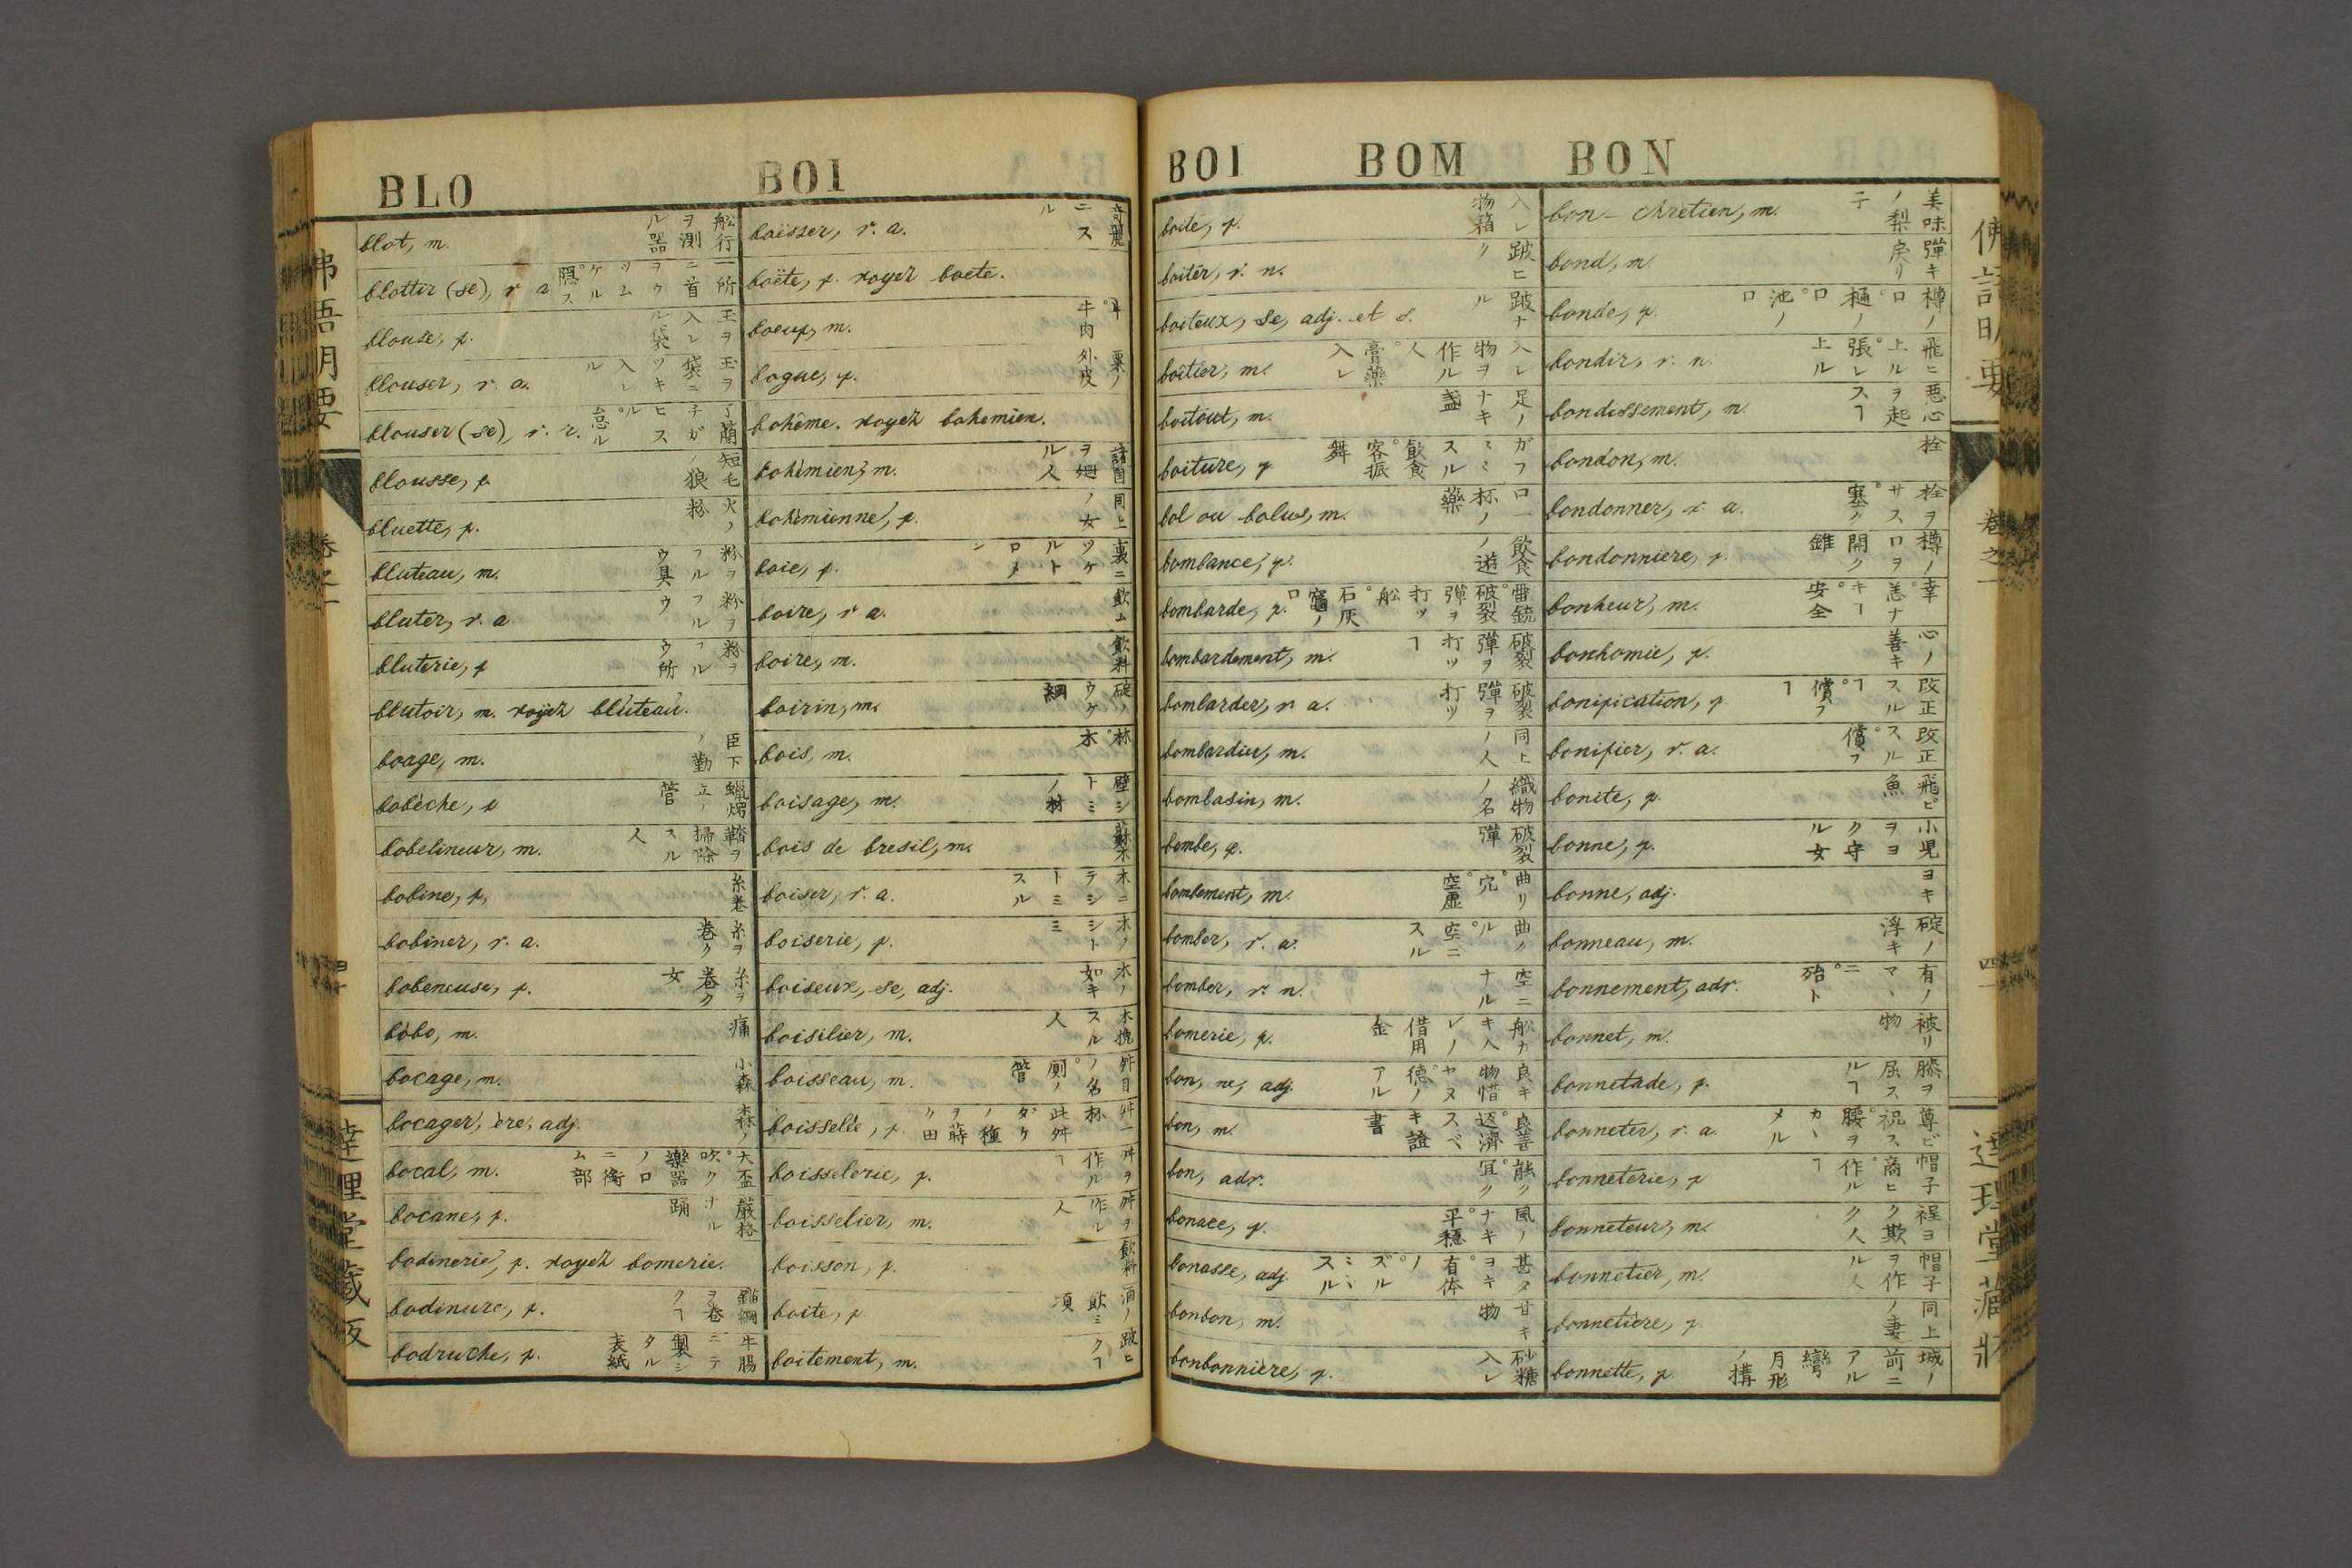 BLO
BOI
blot, m. 舩行ヲ測ル器
blottir (se), r a 一所ニ首ヲウツムケル。隠ス
blouse, f. 玉ヲ入レル袋
blouser, r. a. 玉ヲ袋ニツキ入レル
blouser (se), r. r.
blousse, f. 短毛ノ狼
bluette, f. 火ノ粉
bluteau, m. 粉ヲフルウ具
bluter, r. a 粉ヲフルウ
bluterie, f 粉ヲフルウ所
blutoir, m. royez bluteau.
boage, m. 臣下ノ勤
bobèche, f 蠟燭立ノ管
bobelineur, m. 鞜ヲ掃除スル人
bobine, f. 糸巻
bobiner, r. a. 糸ヲ巻ク
bobeneuse, f. 糸ヲ巻ク女
bobo, m. 痛
bocage, m. 小森
bocager, ère, adj. 森ノ
bocal, m. 大盃。吹ク樂器ノ口ニ銜ム部
bocane, f. 嚴格ナル踊
bodinerie, f. royez bomerie.
bodinure, f. 錨綱ヲ巻クヿ
bodruche, f. 牛腸ニテ製シタル表紙
boësser, r. a. 奇麗ニスル
boëte, f. royez boete.
boeuf, m. 牛。牛肉
bogue, f. 栗ノ外皮
bohême. royez bohemien.
bohèmien, m. 諸国ヲ廻ル人
bohèmienne, f. 同上ノ女
boie, f.
boire, r a. 飲ム
boire, m. 飲料
boirin, m. 碇ノウケ綱
bois, m. 林。木
boisage, m. 壁シトミノ材
bois de bresil, m. 蘇木
boiser, r. a. 木ニテシトミスル
boiserie, f. 木ノシトミ
boiseux, se, adj. 木ノ如キ
boisilier, m. 木挽スル人
boisseau, m. 舛目ノ名。厠ノ管
boisselée, f. 舛一杯。此舛ダケノ種ヲ蒔ク田
boisselerie, f. 舛ヲ作ルヿ
boisselier, m. 舛ヲ作ル人
boisson, f. 飲料
boite, f 酒ノ飲ミ頃
boitement, m. 跛ヒクヿ
BOI
BOM
BON
boite, f. 入レ物。箱
boiter, r. n. 跛ヒク
boiteux, se, adj. et s. 跛ナル
boitier, m. 入レ物ヲ作ル人。膏藥入レ
boitout, m. 足ノナキ盞
boiture, f.
bol ou bolus, m. 口一杯ノ藥
bombance, f. 飲食ノ遊
bombarde, f. 雷銃。破裂彈ヲ打ツ舩。石灰竈ノ口
bombardement, m. 破裂彈ヲ打ツヿ
bombarder, r a. 破裂彈ヲ打ツ
bombardier, m. 同上ノ人
bombasin, m. 織物ノ名
bombe, f. 破裂彈
bombement, m. 曲リ。穴。空虛
bomber, r. a. 曲クル。空ニスル
bomber, r. n. 空ニナル
bomerie, f.
bon, ne, adj.
bon, m. 良善。返濟スベキ證書
bon, adr. 能ク。宜ク
bonace, f. 風ノナキ。平穩
bonasse, adj.
bonbon, m. 甘キ物
bonbonnière, f. 砂糖入レ
bon-chretien, m. 美味ノ梨子
bond, m. 彈キ戾リ
bonde, f. 樽ノ口。樋ノ口。池ノ口
bondir, r. n. 飛ヒ上ル。張レ上ル
bondissement, m. 悪心ヲ起スヿ
bondon, m. 栓
bondonner, r a. 栓ヲサス。塞ク
bondonniere, f. 樽ノ口ヲ開ク錐
bonheur, m. 幸。恙ナキヿ。安全
bonhomie, f. 心ノ善キ
bonification, f 改正スルヿ。償フヿ
bonifier, r. a. 改正スル。償フ
bonite, f. 飛ビ魚
bonne, f. 小児ヲヨク守ル女
bonne, adj. ヨキ
bonneau, m. 碇ノ浮キ
bonnement, adr. 有ノマヽニ。殆ト
bonnet, m. 被リ物
bonnetade, f. 膝ヲ屈スルヿ
bonneter, r. a. 尊ビ祝ス。腰ヲカヽメル
bonneterie, f 帽子商ヒ。作ルヿ
bonneteur, m.
bonnetier, m. 帽子ヲ作ル人
bonnetière, f. 同上ノ妻
bonnette, f. 城ノ前ニアル彎月形ノ搆
巻之一
四一